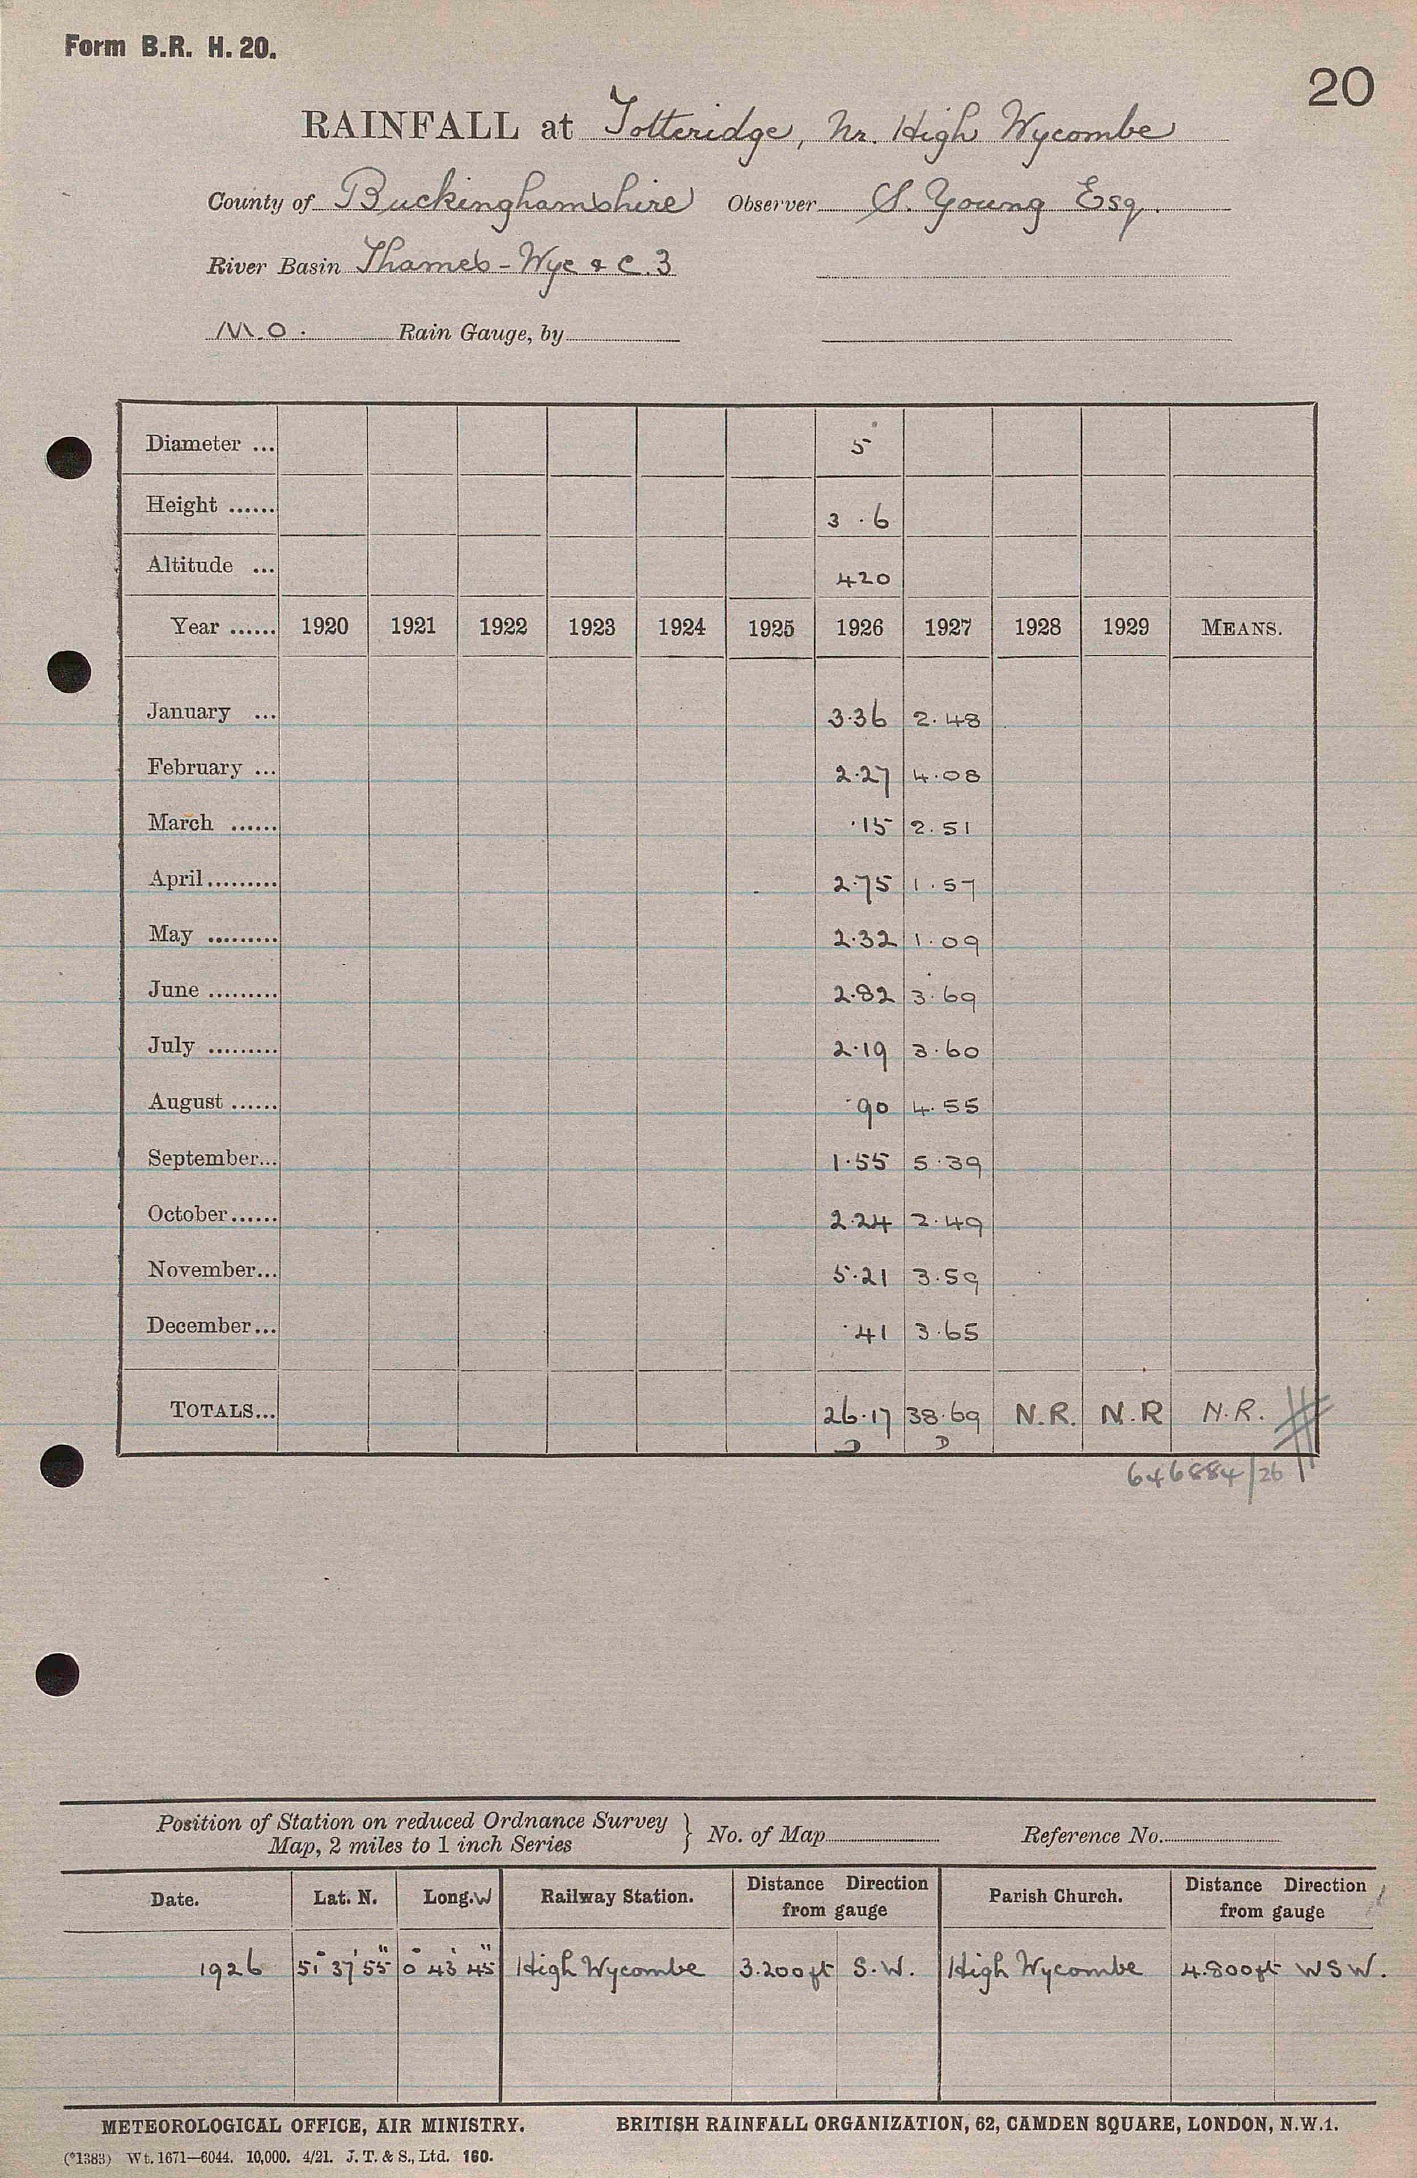 Form B.R. H. 20.
20
RAINFALL at Totteridge, Nr. High Wycombe
County of Buckinghamshire Observer S. Young Esq.
River Basin Thames - Wye & C. 3
M.O. Rain Gauge, by
Diameter ... 5
Height ...... 3 . 6
Altitude ... 420
Year ...... 1920 1921 1922 1923 1924 1925 1926 1927 1928 1929 MEANS.
January ... 3.36 2.48
February ... 2.27 4.08
March ...... .15 2.51
April......... 2.75 1.57
May ......... 2.32 1.09
June ......... 2.82 3.69
July ......... 2.19 3.60
August ...... .90 4.55
September... 1.55 5.39
October...... 2.24 2.49
November... 5.21 3.59
December... .41 3.65
TOTALS... 26.17 38.69 N.R. N.R N.R.
D D
646884/26
Position of Station on reduced Ordnance Survey
Map, 2 miles to 1 inch Series } No. of Map Reference No.
Date. Lat. N. Long. W Railway Station. Distance Direction from gauge Parish Church. Distance Direction from gauge
1926 51° 37' 55" 0° 43' 45" High Wycombe 3.200ft S.W. High Wycombe 4.800ft WSW.
METEOROLOGICAL OFFICE, AIR MINISTRY. BRITISH RAINFALL ORGANIZATION, 62, CAMDEN SQUARE, LONDON, N.W.1.
(*1383) Wt. 1671—6044. 10,000. 4/21. J. T. & S., Ltd. 160.